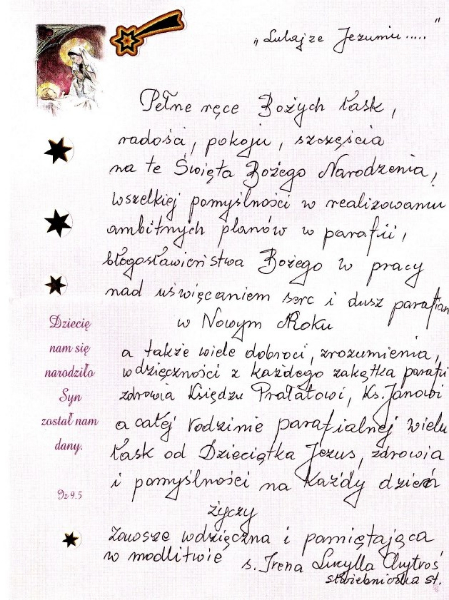 „Lulajże Jezuniu....."
Pełne ręce Bożych łask,
radości, pokoju, szczęścia
na te Święta Bożego Narodzenia,
wszelkiej pomyślności w realizowaniu
ambitnych planów w parafii,
błogosławieństwa Bożego w pracy
nad uświęcaniem serc i dusz parafian
w Nowym Roku
a także wiele dobroci, zrozumienia,
wdzięczności z każdego zakątka parafii
zdrowia Księdzu Prałatowi, Ks. Janowi
a całej rodzinie parafialnej wielu
łask od Dzieciątka Jezus, zdrowia
i pomyślności na każdy dzień
życzy
zawsze wdzięczna i pamiętająca
w modlitwie s. Irena
służebniczka st.
Dziecię
nam się
narodziło
Syn
został nam
dany.
Iz 9.5